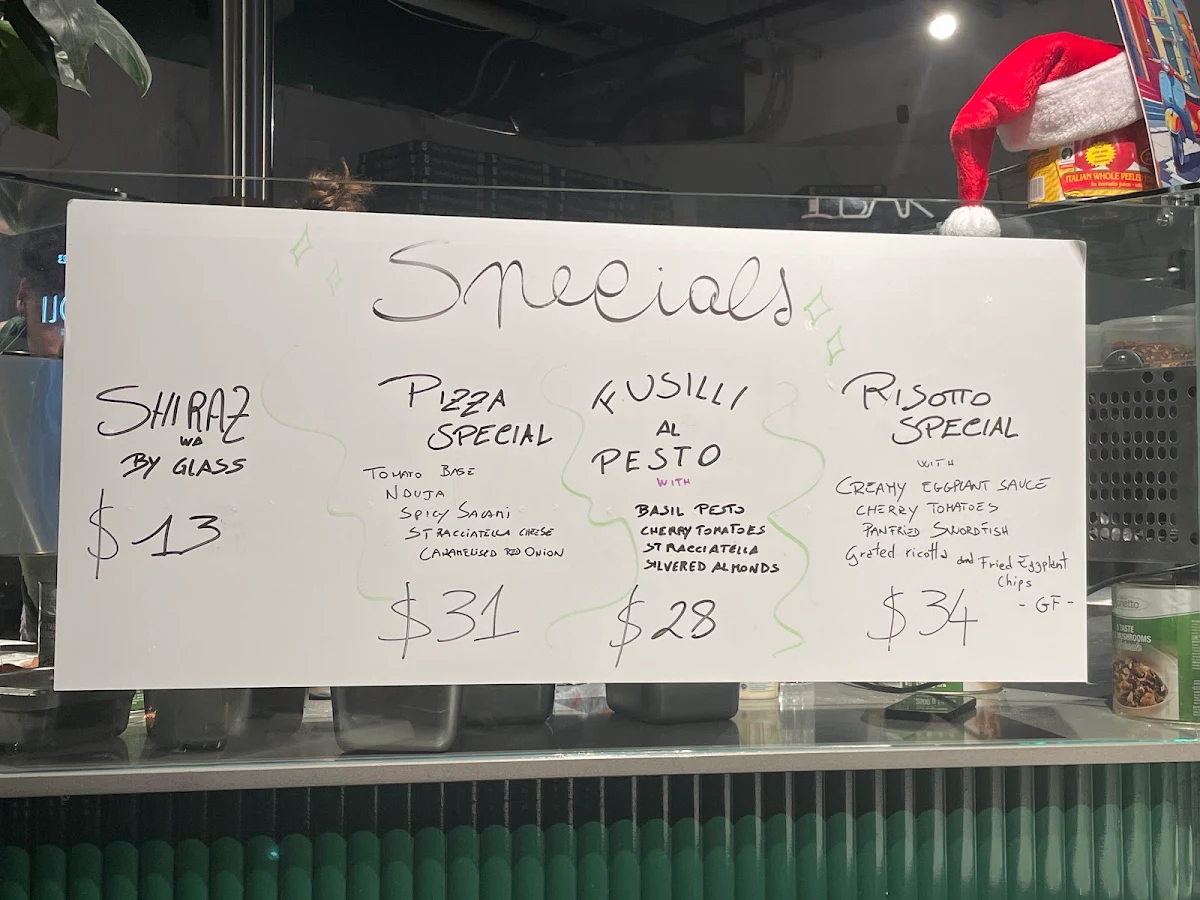 Specials
SHIRAZ
WA
BY GLASS
$13
PIZZA
SPECIAL
TOMATO BASE
NDUJA
SPICY SALAMI
STRACCIATELLA CHEESE
CARAMELISED RED ONION
$31
FUSILLI
AL
PESTO
WITH
BASIL PESTO
CHERRY TOMATOES
STRACCIATELLA
SILVERED ALMONDS
$28
RISOTTO
SPECIAL
WITH
CREAMY EGGPLANT SAUCE
CHERRY TOMATOES
PANFRIED SWORDFISH
Grated ricotta and Fried Eggplant
Chips
- GF -
$34
ITALIAN WHOLE PEELE
In tomato juice
TASTE